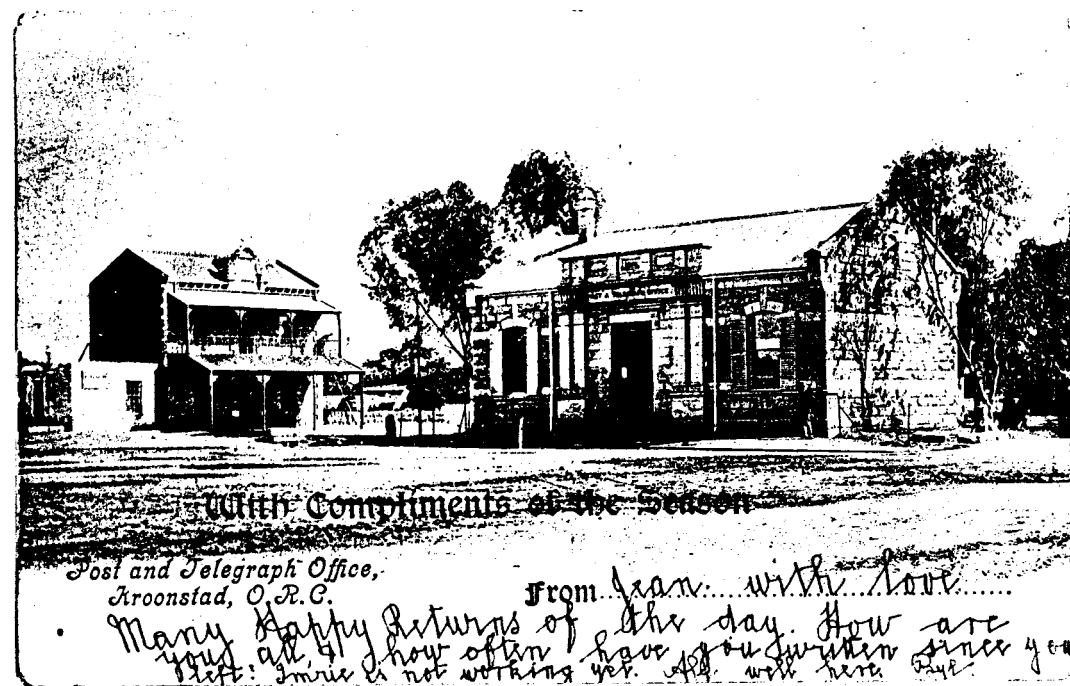 With Compliments of the Season
Post and Telegraph Office,
Kroonstad, O.R.C.
From Jean. with love
Many Happy Returns of the day. How are
you all, how often have you written since you
left: Imrie is not working yet. All well here.